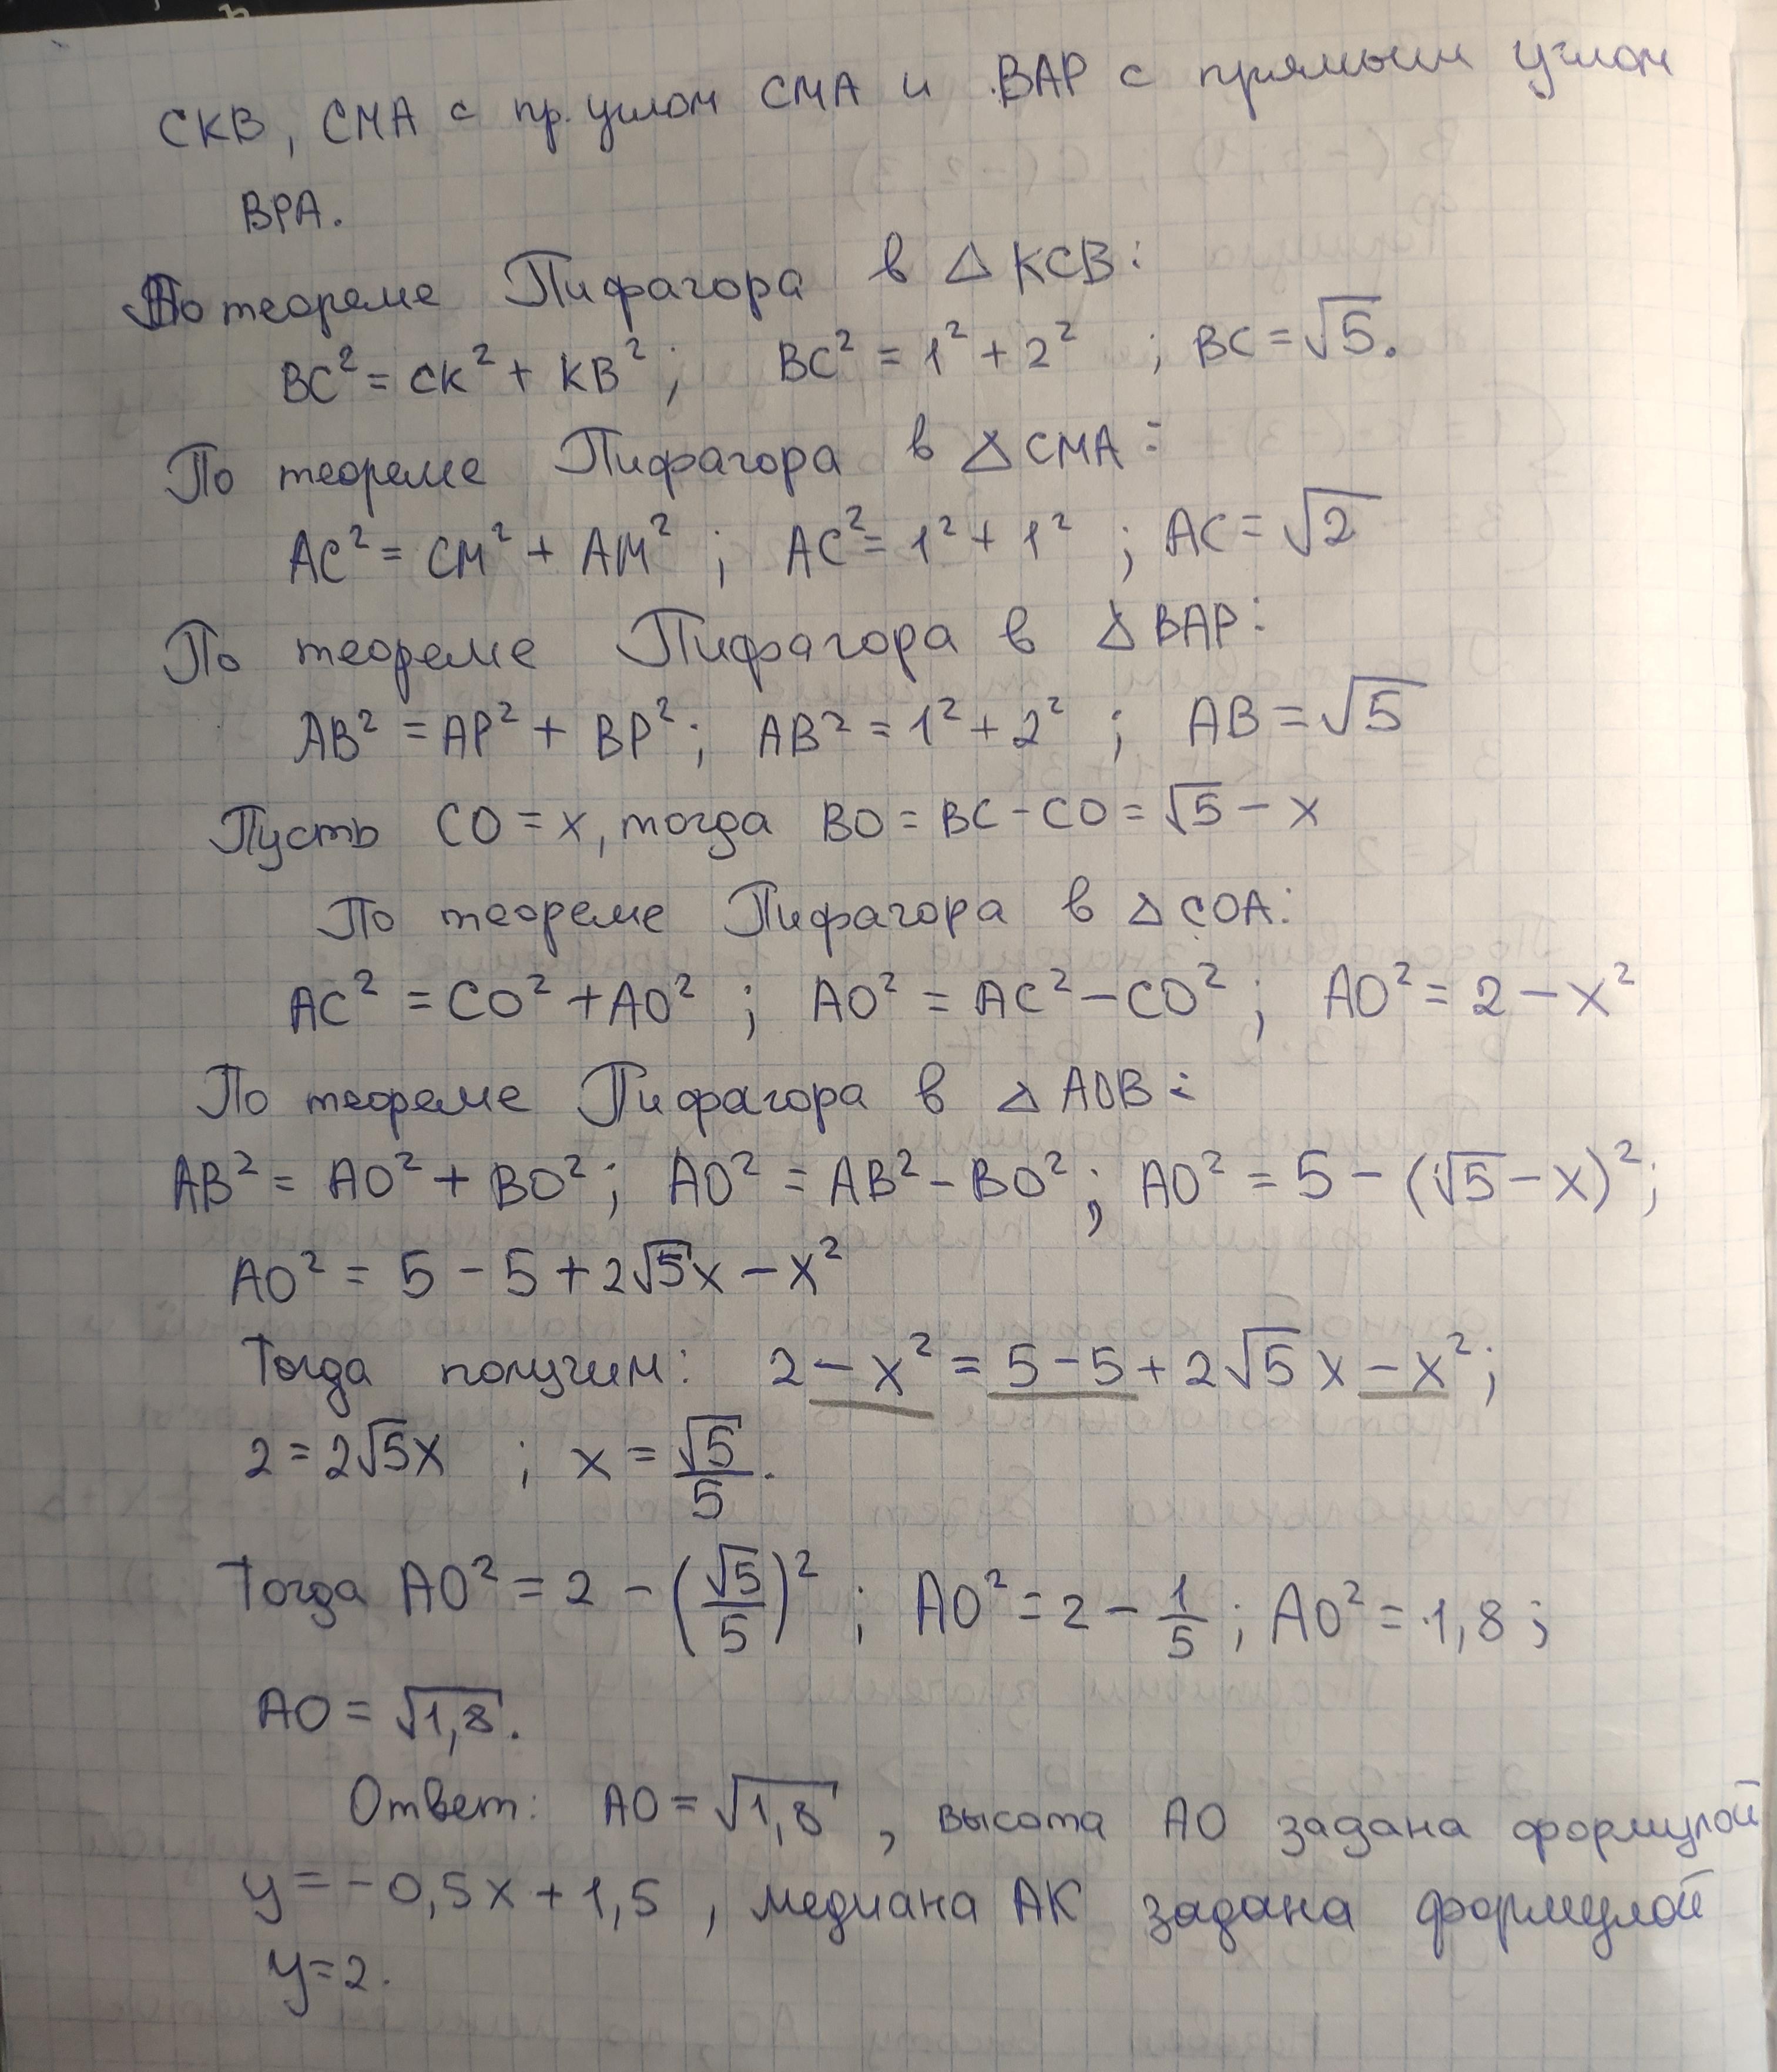 СКВ, СМА с пр. углом СМА и ВАР с прямым углом
ВРА.
По теореме Пифагора в △KCB:
BC² = CK² + KB²; BC² = 1² + 2² ; BC = √5.
По теореме Пифагора в △CMA:
AC² = CM² + AM² ; AC² = 1² + 1² ; AC = √2
По теореме Пифагора в △BAP:
AB² = AP² + BP²; AB² = 1² + 2² ; AB = √5
Пусть CO = x, тогда BO = BC - CO = √5 - x
По теореме Пифагора в △COA:
AC² = CO² + AO² ; AO² = AC² - CO² ; AO² = 2 - x²
По теореме Пифагора в △AOB:
AB² = AO² + BO²; AO² = AB² - BO²; AO² = 5 - (√5 - x)²;
AO² = 5 - 5 + 2√5x - x²
Тогда получим: 2 - x² = 5 - 5 + 2√5 x - x²;
2 = 2√5x ; x = √5/5.
Тогда AO² = 2 - (√5/5)² ; AO² = 2 - 1/5 ; AO² = 1,8 ;
AO = √1,8.
Ответ: AO = √1,8 , высота AO задана формулой
y = -0,5x + 1,5 , медиана AK задана формулой
y = 2.